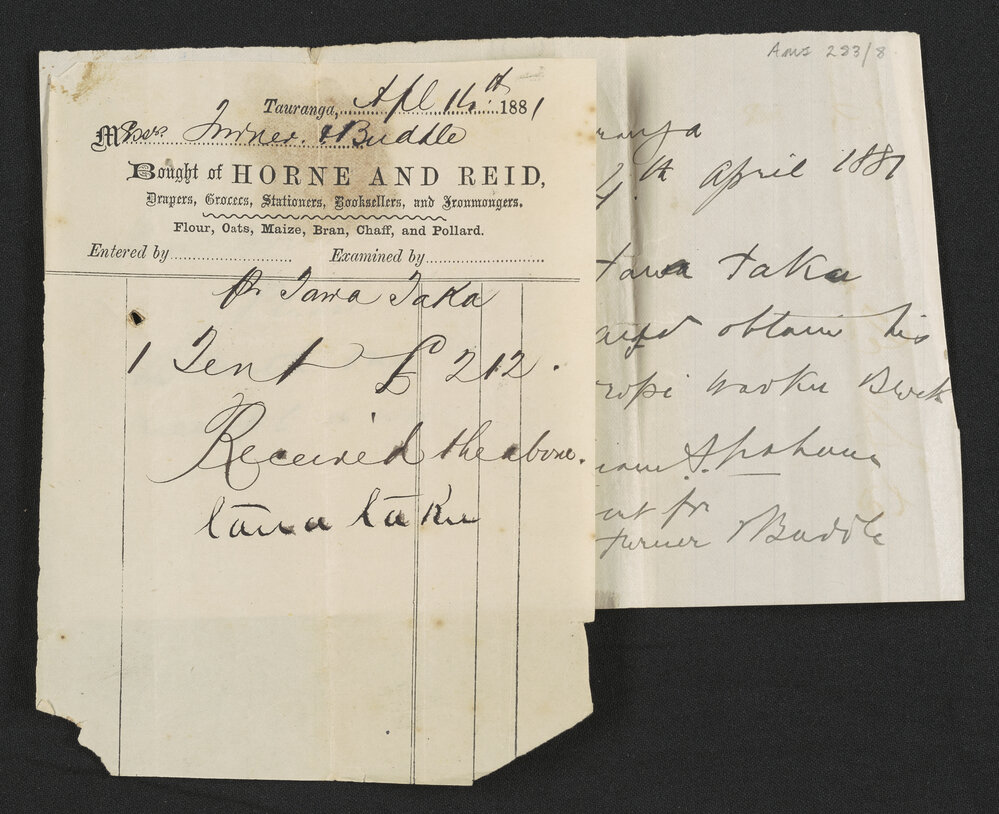 Ams 283/8
Tauranga, Apl 14th 1881
Messrs. Turner & Buddle
Bought of HORNE AND REID,
Drapers, Grocers, Stationers, Booksellers, and Ironmongers.
Flour, Oats, Maize, Bran, Chaff, and Pollard.
Entered by Examined by
Pr Tawa Taka
1 Tent £ 2 12 .
Received the above.
tawa taku
ranga
th April 1881
tawa taku
obtain his
for
Turner & Buddle